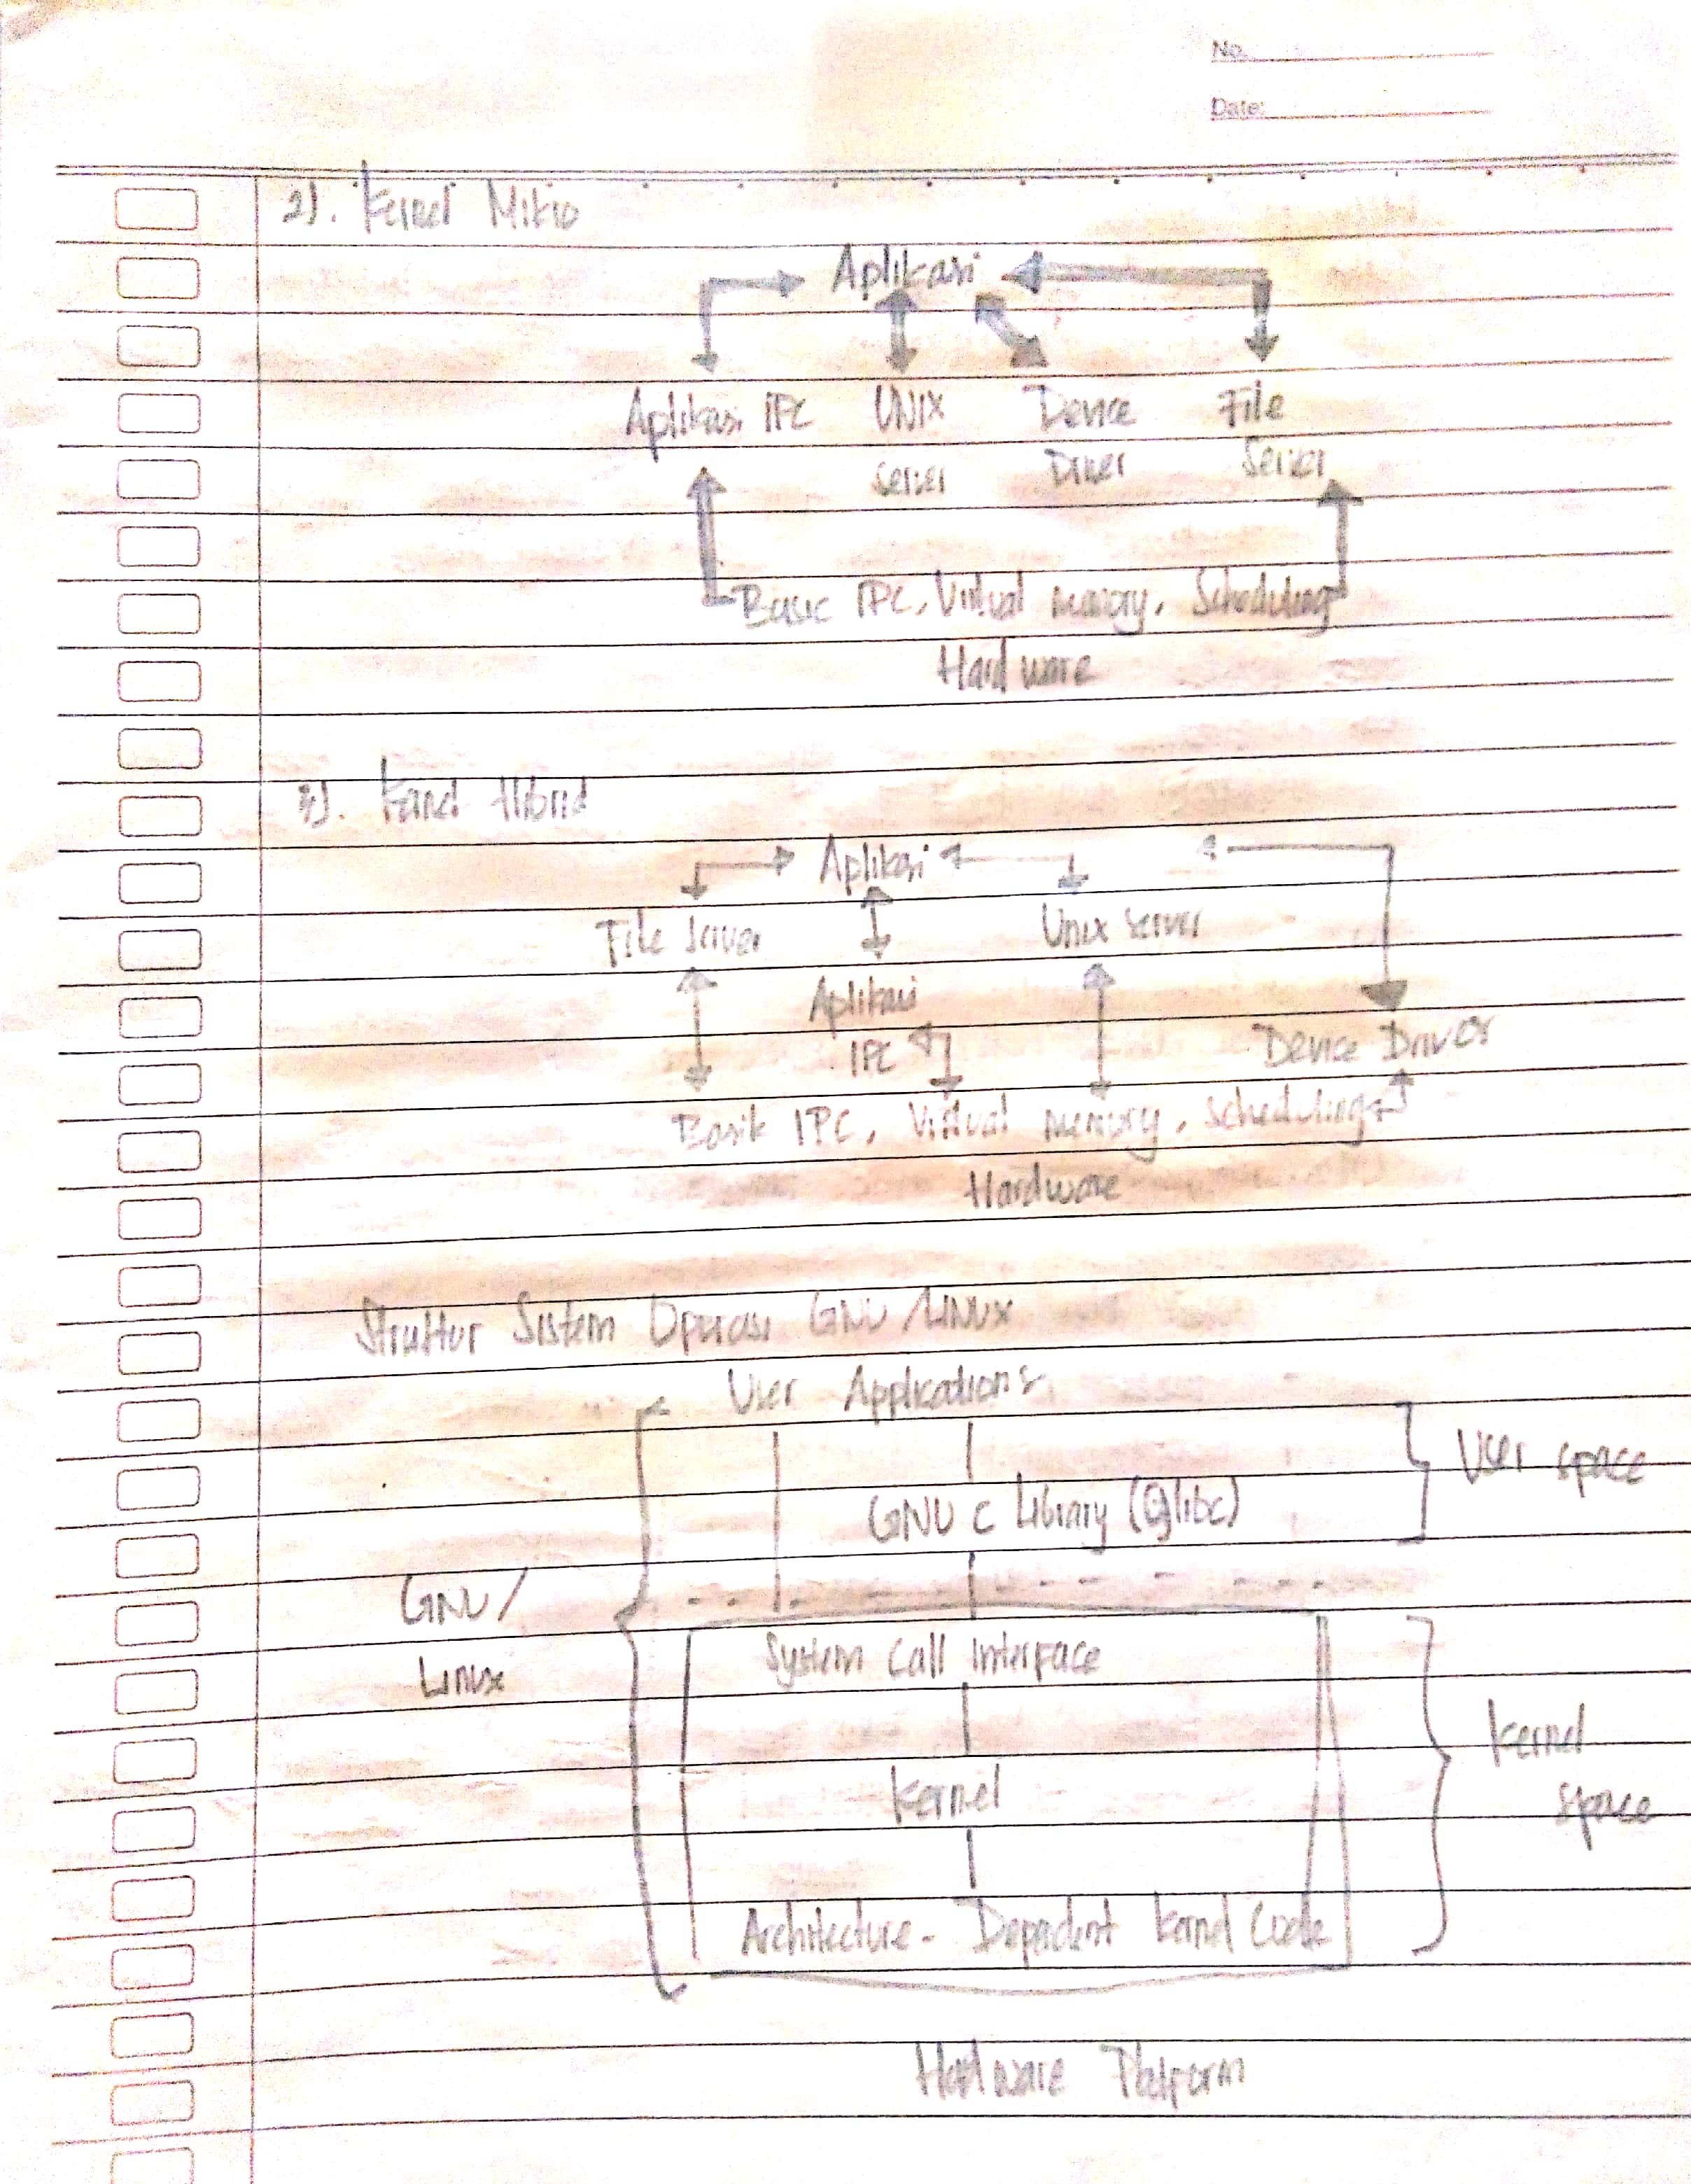 No.
Date:
2). Kernel Mikro
Aplikasi
Aplikasi IPC UNIX Device File
Server Driver Server
Basic IPC, Virtual memory, Scheduling
Hardware
3). Kernel Hibrid
Aplikasi
File Server Unix Server
Aplikasi
IPC Device Driver
Basik IPC, Virtual memory, Scheduling
Hardware
Struktur Sistem Operasi GNU/LINUX
User Applications
User space
GNU C Library (glibc)
GNU/
Linux
System Call Interface
Kernel
space
Kernel
Architecture- Dependent Kernel Code
Hardware Platform